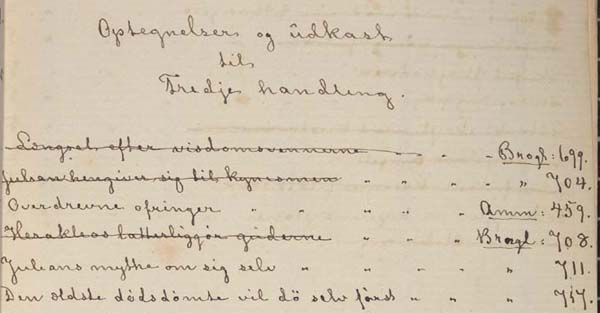 Optegnelser og ûdkast
til
Tredje handling.
Længsel efter visdomsvennerne „ „ „ Brogl: 699.
Julian hengiver sig til kynismen „ „ „ „ 704.
Overdrevne ofringer „ „ „ „ Amm: 459.
Herakleos latterliggjør guderne „ „ „ Brogl: 708.
Julians mythe om sig selv „ „ „ „ 711.
Den ældste dödsdömte vil dö selv först „ „ „ 717.